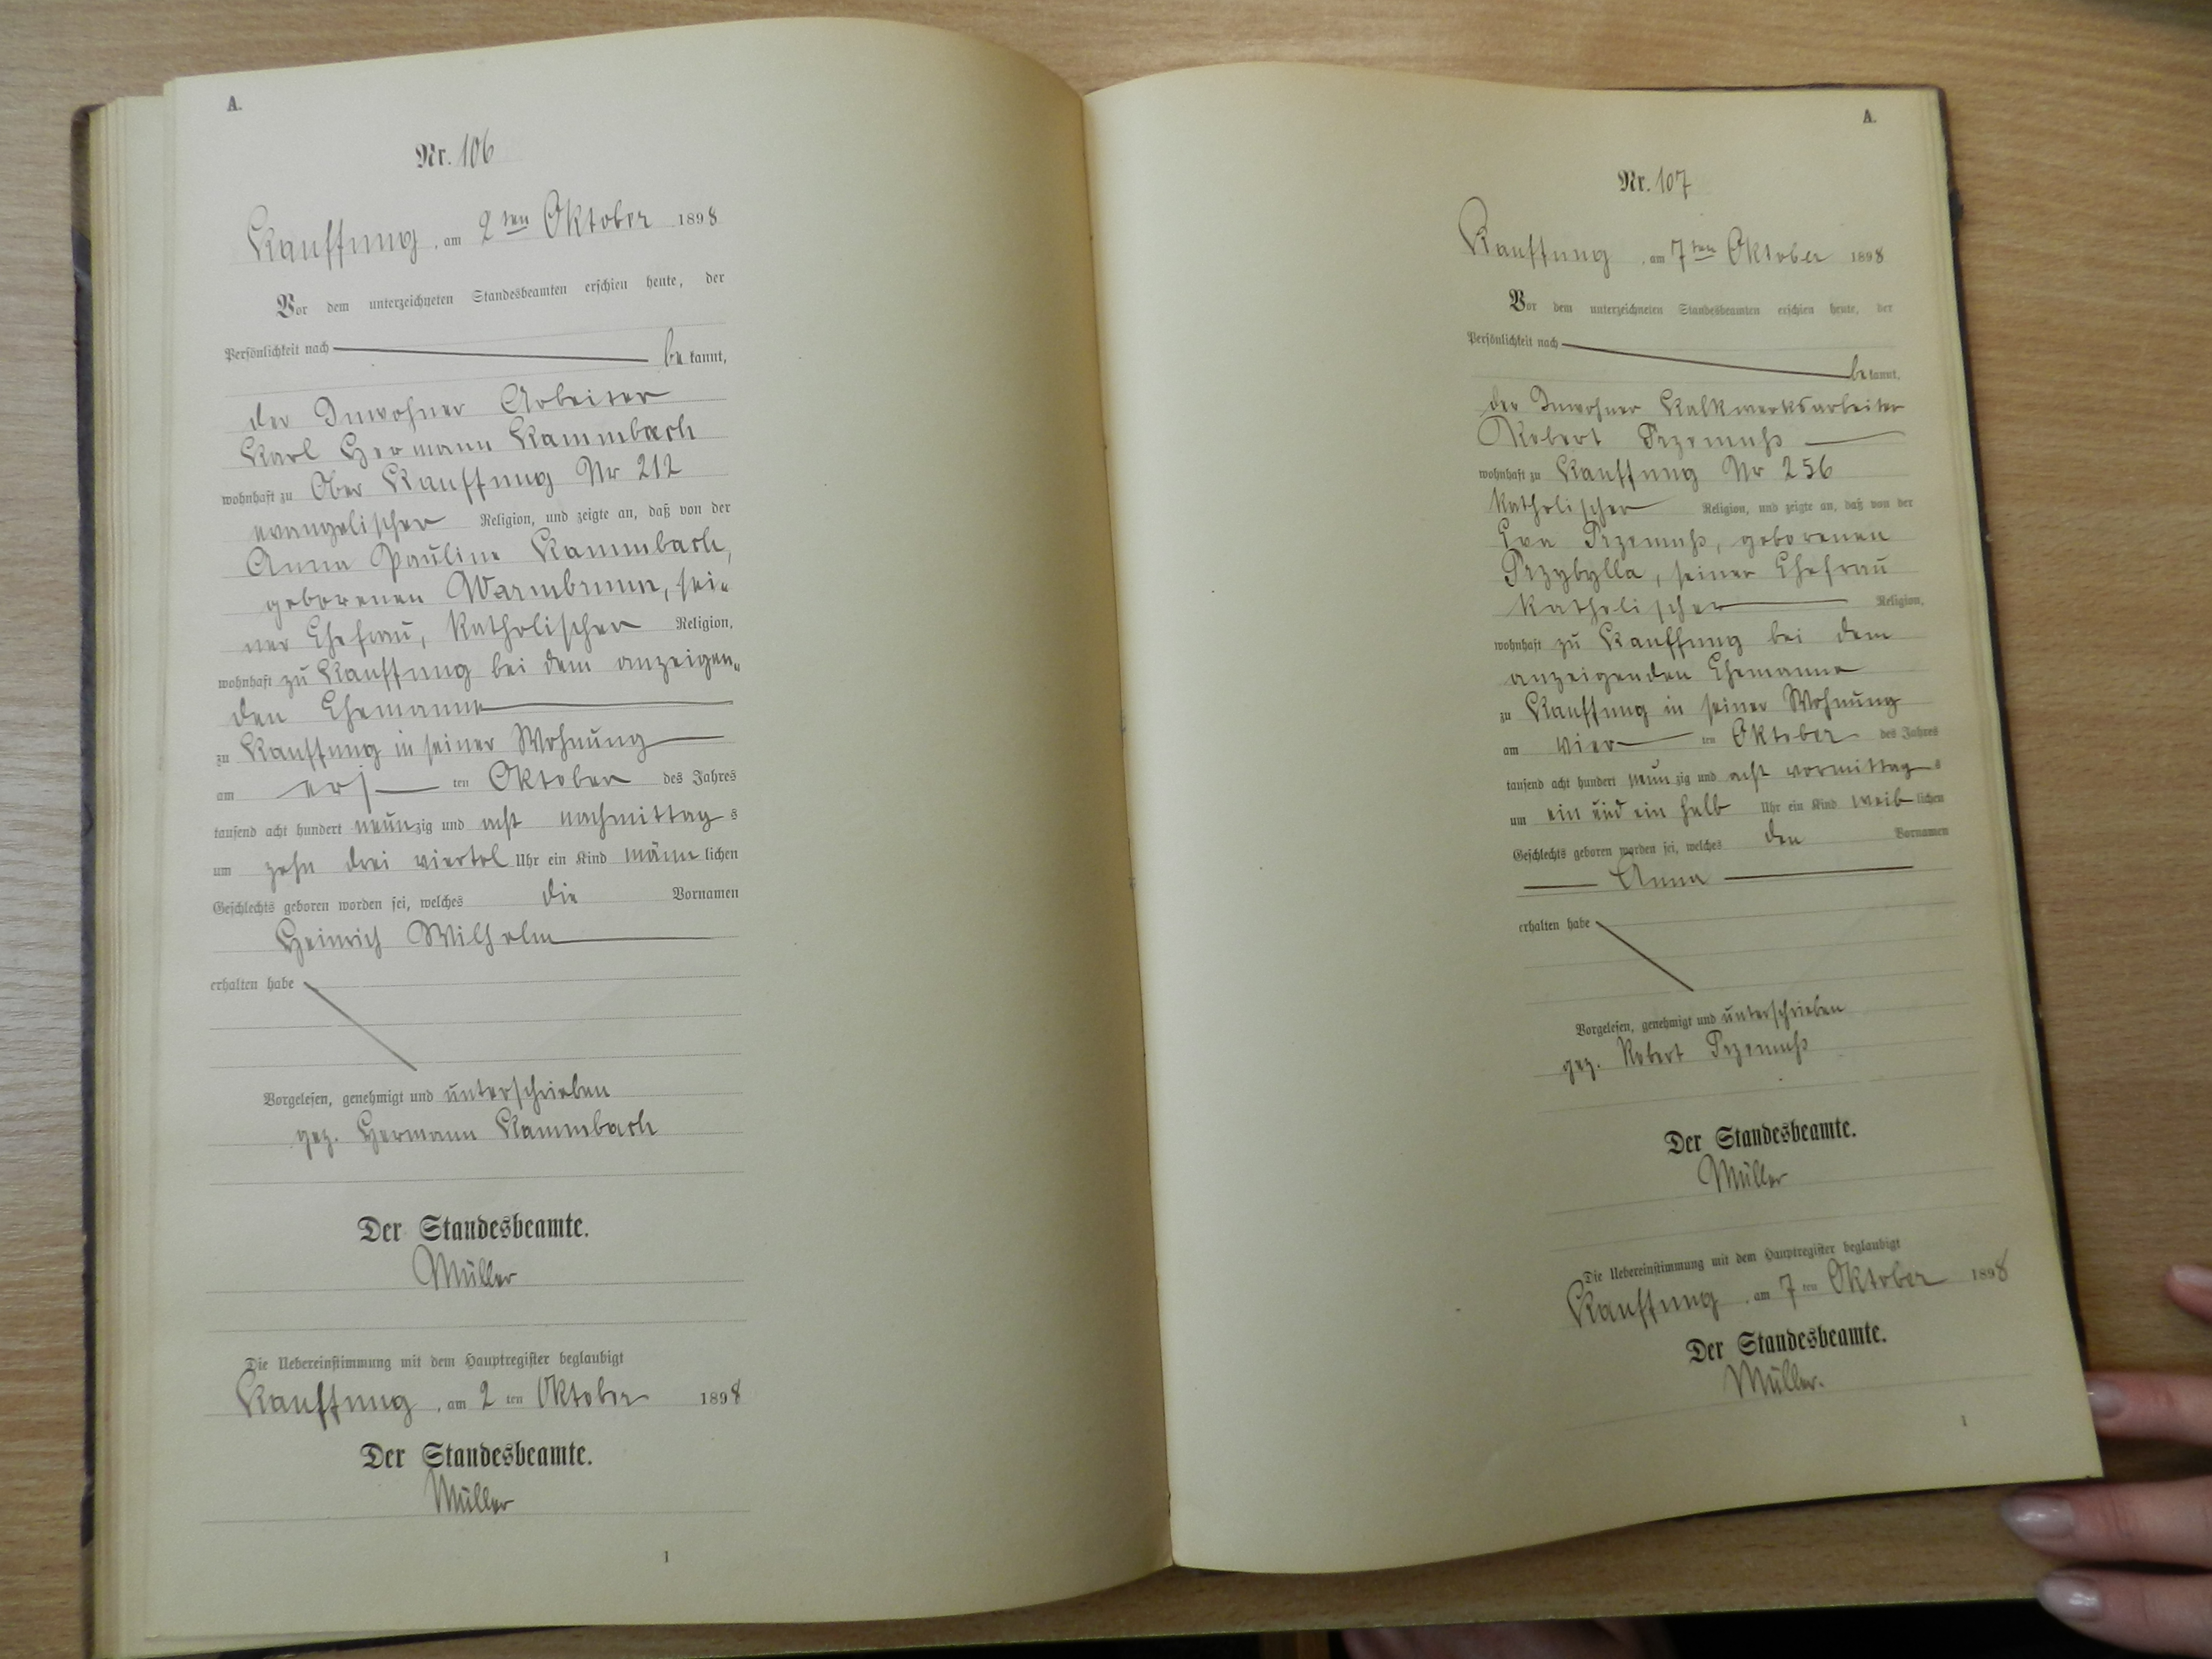 A.
Nr. 106
Kauffung, am 2ten Oktober 1898
Vor dem unterzeichneten Standesbeamten erschien heute, der
Persönlichkeit nach
be kannt,
der Inwohner Arbeiter
Karl Hermann Kammbach
wohnhaft zu Ober Kauffung Nr 212
evangelischer Religion, und zeigte an, daß von der
Anna Pauline Kammbach,
geborenen Warmbrunn, sei-
ner Ehefrau, katholischer Religion,
wohnhaft zu Kauffung bei dem anzeigen-
den Ehemanne
zu Kauffung in seiner Wohnung
am ers ten Oktober des Jahres
tausend acht hundert neunzig und acht nachmittags
um zehn drei viertel Uhr ein Kind männlichen
Geschlechts geboren worden sei, welches die Vornamen
Heinrich Wilhelm
erhalten habe
Vorgelesen, genehmigt und unterschrieben
gez. Hermann Kammbach
Der Standesbeamte.
Müller
Die Uebereinstimmung mit dem Hauptregister beglaubigt
Kauffung, am 2 ten Oktober 1898
Der Standesbeamte.
Müller
1
A.
Nr. 107
Kauffung, am 7ten Oktober 1898
Vor dem unterzeichneten Standesbeamten erschien heute, der
Persönlichkeit nach
be kannt,
der Inwohner Kalkwerksarbeiter
Robert
wohnhaft zu Kauffung Nr 256
katholischer Religion, und zeigte an, daß von der
Eva geborenen
Przybylla, seiner Ehefrau
katholischer Religion,
wohnhaft zu Kauffung bei dem
anzeigenden Ehemanne
zu Kauffung in seiner Wohnung
am vier ten Oktober des Jahres
tausend acht hundert neunzig und acht vormittags
um ein und ein halb Uhr ein Kind weiblichen
Geschlechts geboren worden sei, welches den Vornamen
Anna
erhalten habe
Vorgelesen, genehmigt und unterschrieben
gez. Robert
Der Standesbeamte.
Müller
Die Uebereinstimmung mit dem Hauptregister beglaubigt
Kauffung, am 7 ten Oktober 1898
Der Standesbeamte.
Müller.
1